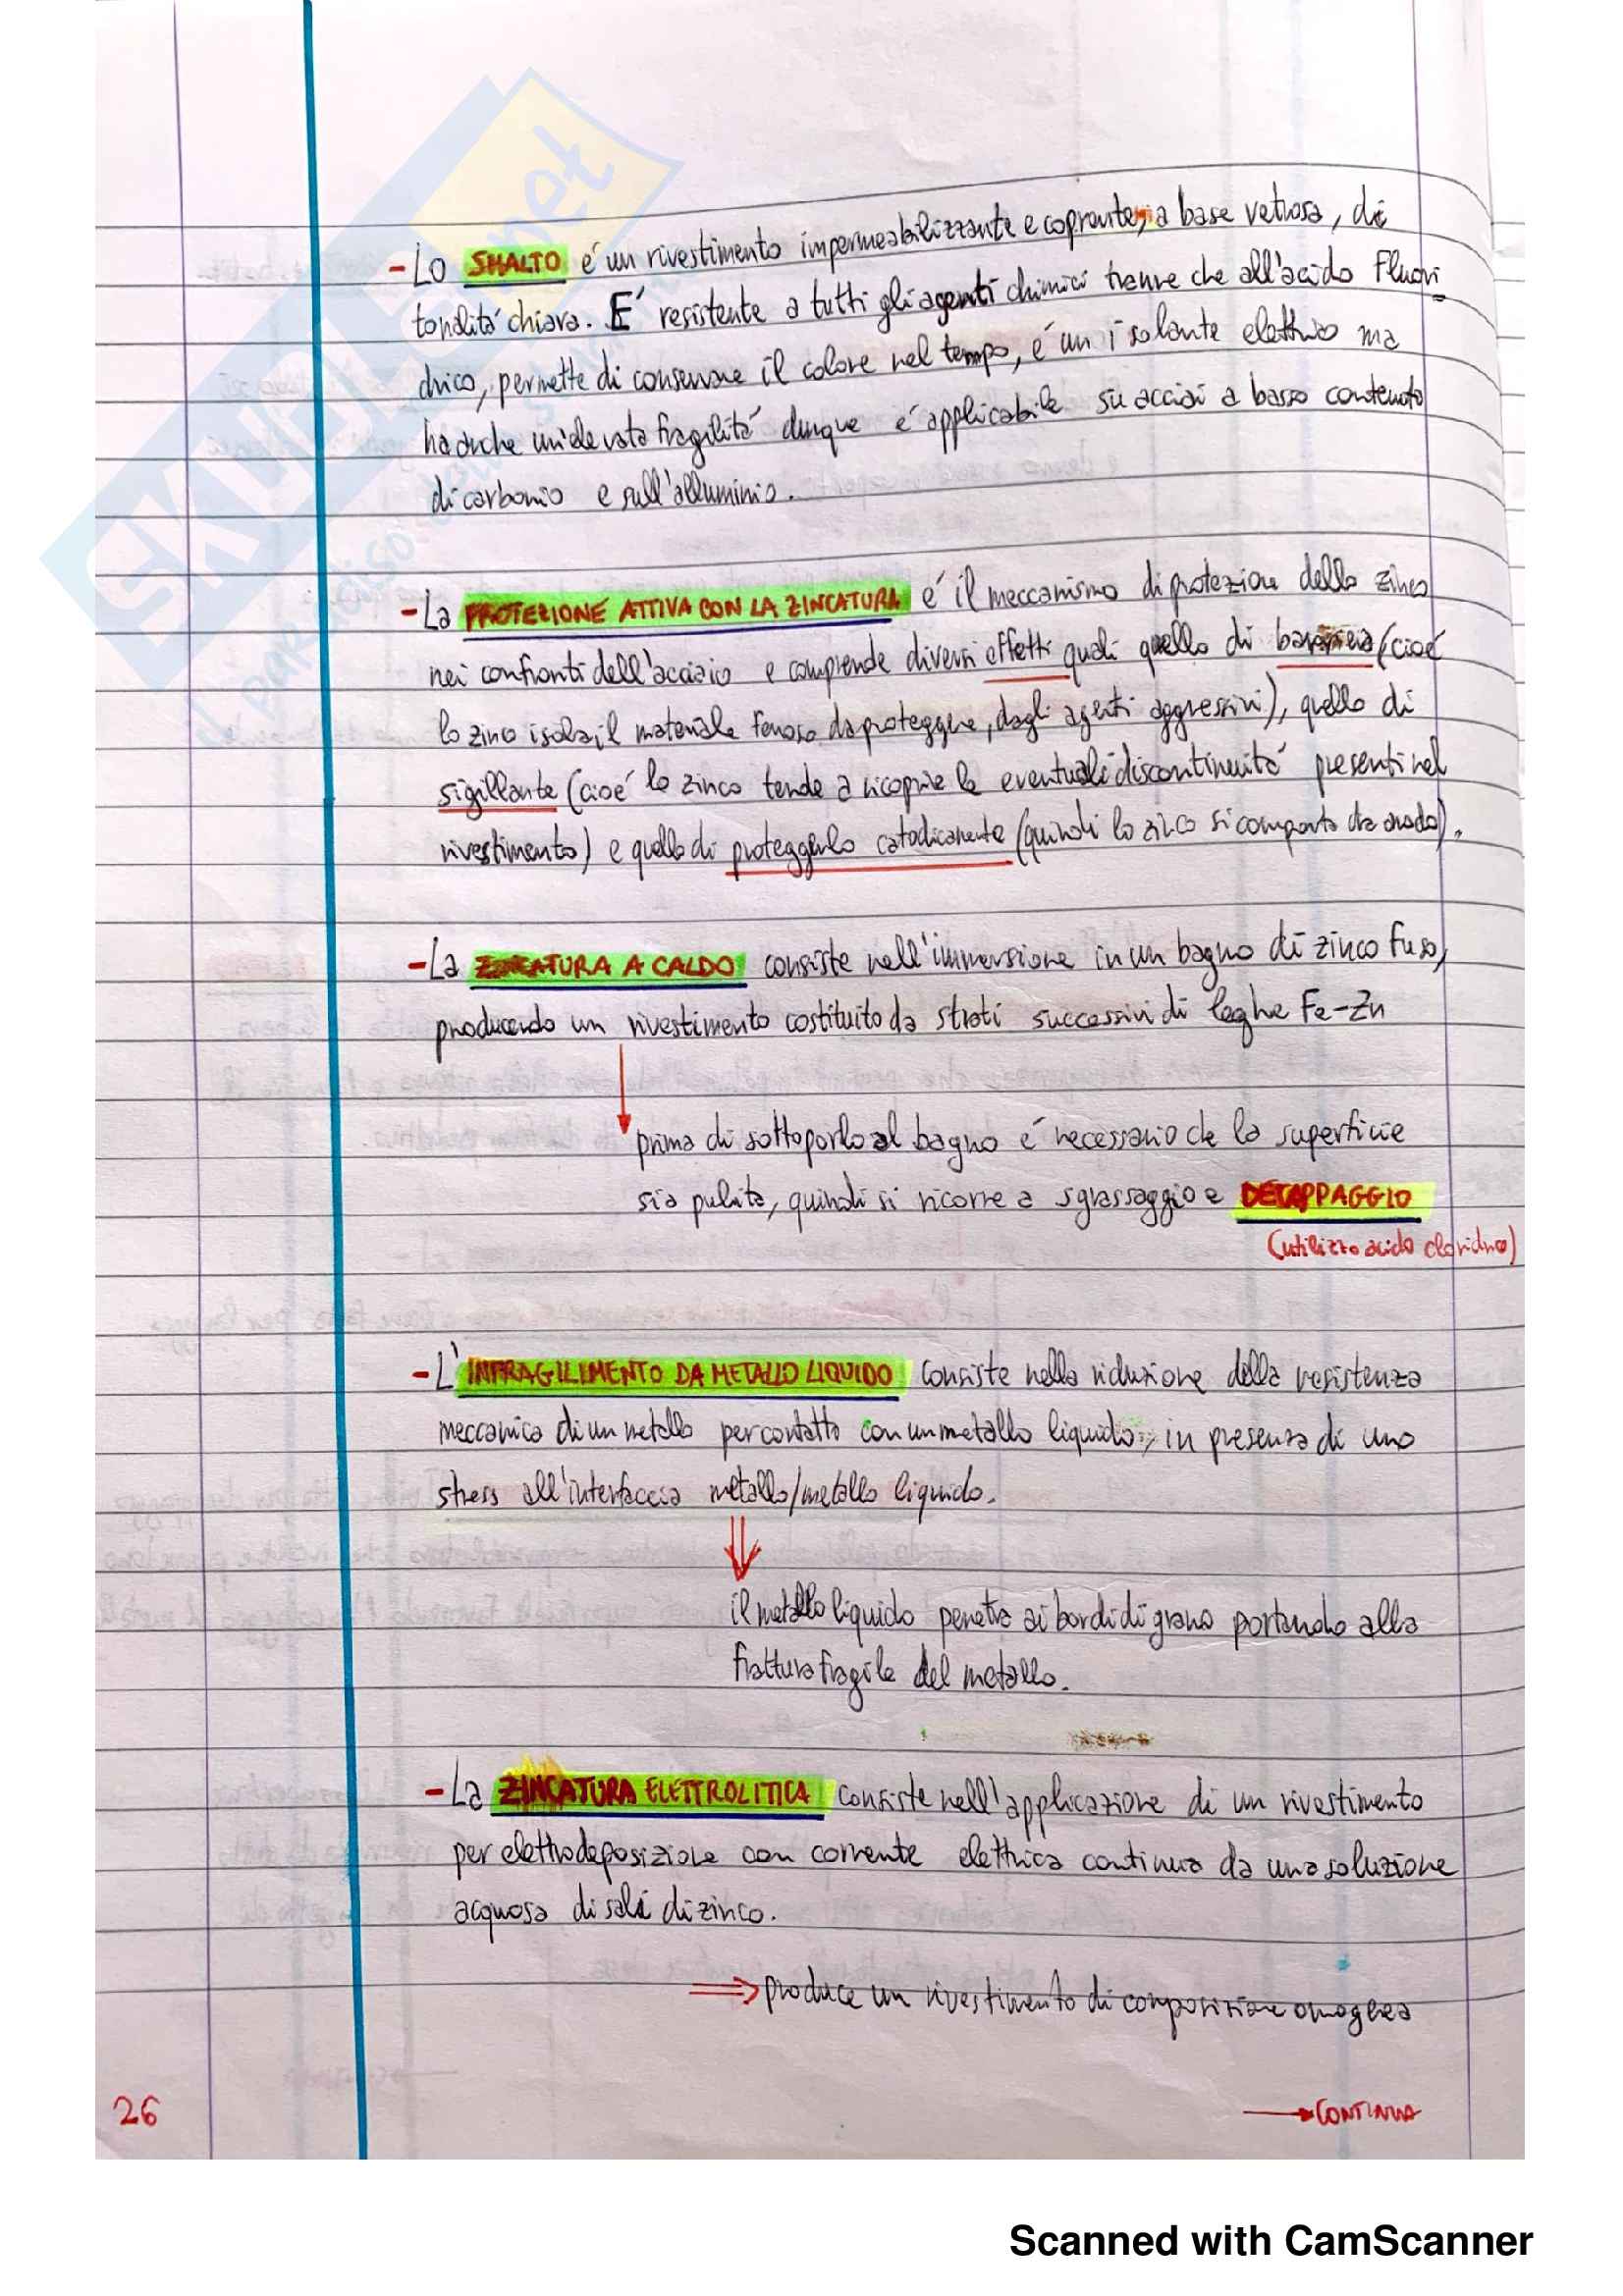 - Lo SMALTO é un rivestimento impermeabilizzante e coprente, a base vetrosa, di
tonalitá chiara. É resistente a tutti gli agenti chimici tranne che all'acido Fluori
drico, permette di conservare il colore nel tempo, é un isolante elettrico ma
ha anche un'elevata fragilitá dunque é applicabile su acciai a basso contenuto
di carbonio e sull'alluminio.
- La PROTEZIONE ATTIVA CON LA ZINCATURA é il meccanismo di protezione dello zinco
nei confronti dell'acciaio e comprende diversi effetti quali quello di barriera (cioé
lo zinco isola il materiale ferroso da proteggere, dagli agenti aggressivi), quello di
sigillante (cioé lo zinco tende a ricoprire le eventuali discontinuitá presenti nel
rivestimento) e quello di proteggerlo catodicamente (quindi lo zinco si comporta da anodo).
- La ZINCATURA A CALDO consiste nell'immersione in un bagno di zinco fuso,
producendo un rivestimento costituito da strati successivi di leghe Fe-Zn
prima di sottoporlo al bagno é necessario che la superficie
sia pulita, quindi si ricorre a sgrassaggio e DECAPPAGGIO
(utilizzo acido cloridrico)
- L'INFRAGILIMENTO DA METALLO LIQUIDO consiste nella riduzione della resistenza
meccanica di un metallo per contatto con un metallo liquido, in presenza di uno
stress all'interfaccia metallo/metallo liquido.
il metallo liquido penetra ai bordi di grano portando alla
frattura fragile del metallo.
- La ZINCATURA ELETTROLITICA consiste nell'applicazione di un rivestimento
per elettrodeposizione con corrente elettrica continua da una soluzione
acquosa di sali di zinco.
⇒ produce un rivestimento di composizione omogenea
26
→ CONTINUA
Scanned with CamScanner